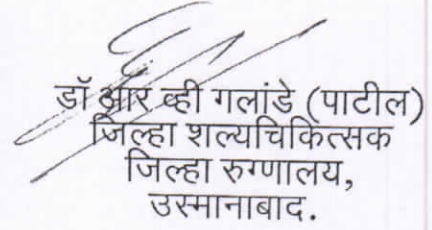 डॉ आर व्ही गलांडे (पाटील)
जिल्हा शल्यचिकित्सक
जिल्हा रुग्णालय,
उस्मानाबाद.